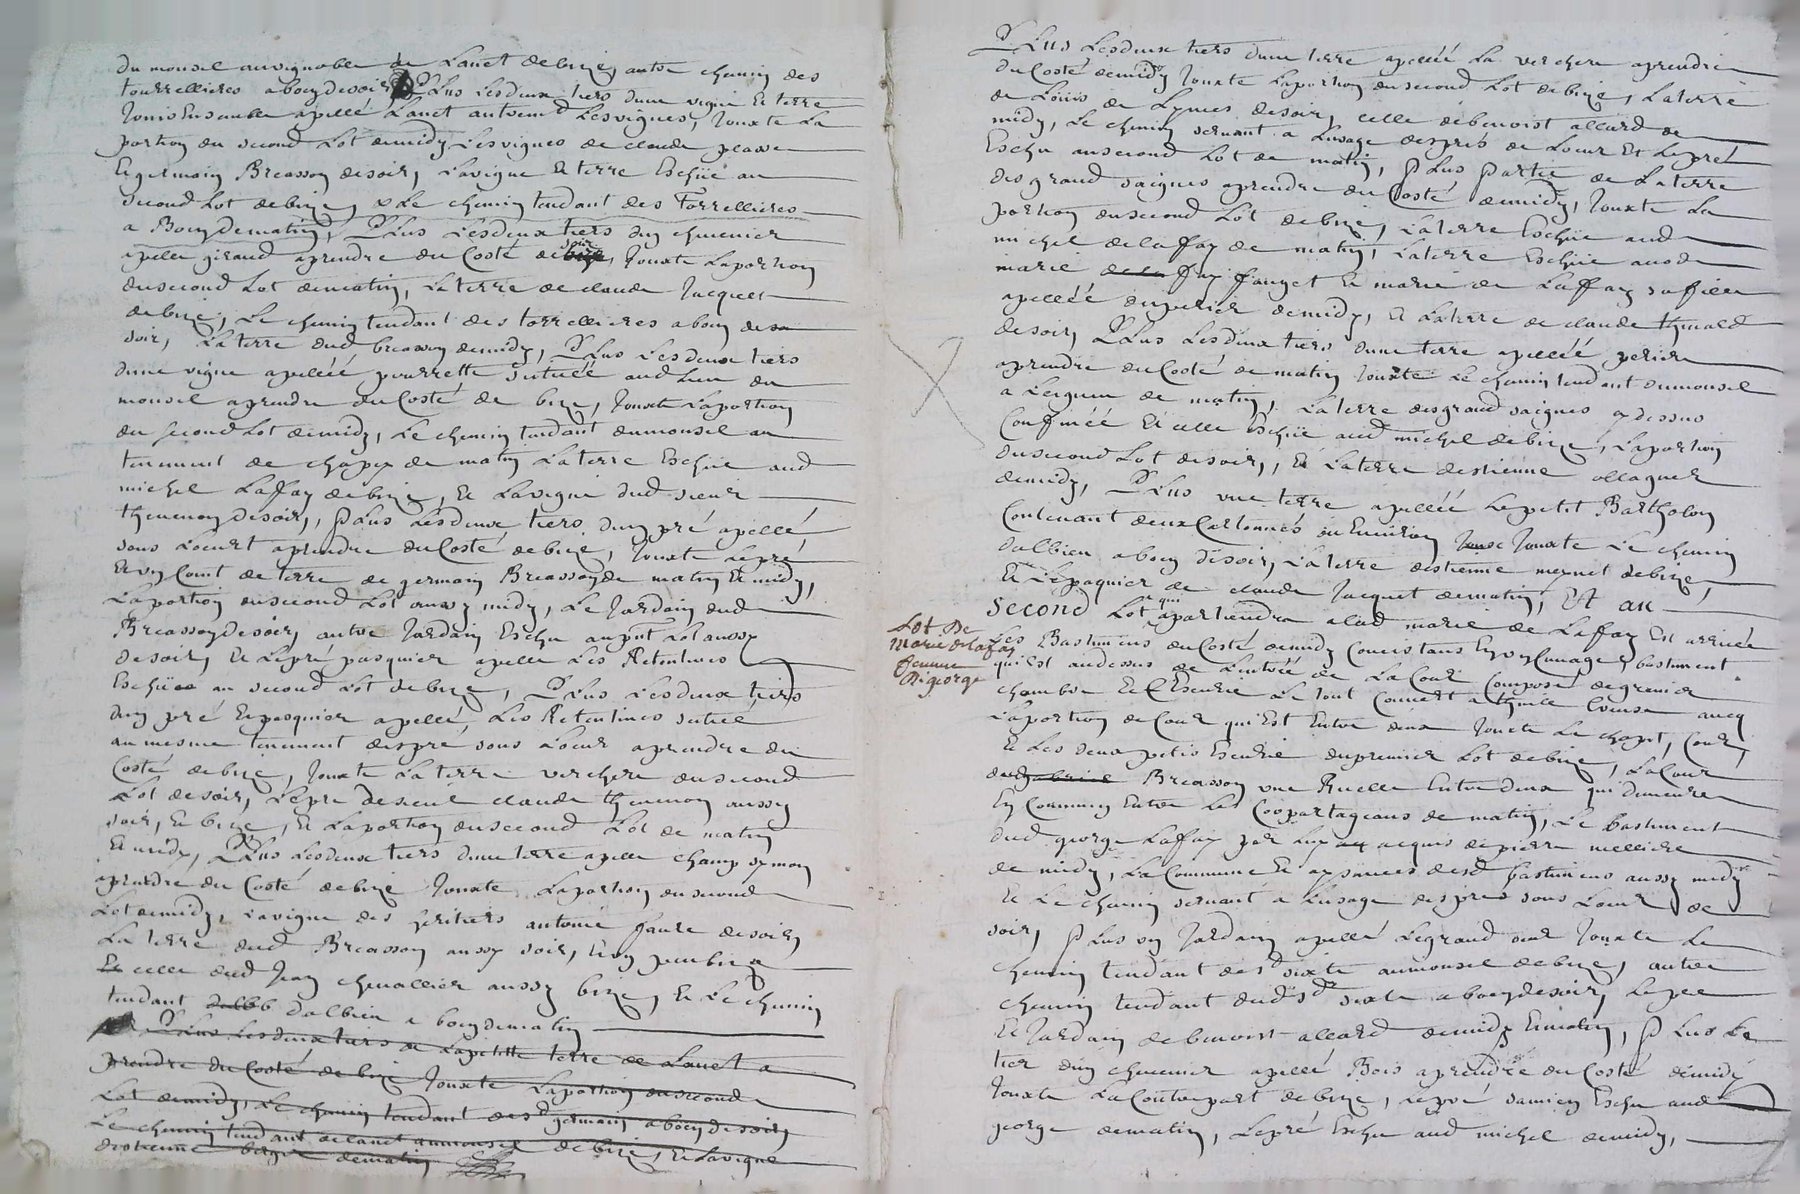 du monsel au vignoble de Lanet de bize, autre chemin des
tourrellieres a boen de soir, Plus Les deux tiers dune vigne Et terre
Joins Ensemble apellé Lanet autremt Les vignes, Jouxte La
portion du second Lot de midy, Les vignes de claude
Et germain Breasson de soir, La vigne Et terre Eschüe au
second Lot de bize, & Le chemin tendant des Torrellieres
a Boen de matin, Plus Les deux tiers dun chenevier
apellé giraud aprendre du Costé de soir, Jouxte La portion
du second Lot de matin, La terre de claude Jacquet
de bize, Le chemin tendant des torrellieres a boen de
soir, La terre dud breasson de midy, Plus Les deux tiers
dune vigne apelléé pourrette scituéé aud Lieu du
monsel aprendre du Costé de bize, Jouxte La portion
du second Lot de midy, Le chemin tendant du monsel au
tenement de chapex de matin La terre Eschüe aud
michel Laffay de bize, Et La vigne dud sieur
thevenon de soir, Plus Les deux tiers dun pré apellé,
sous Loeurt aprendre du Costé de bize, Jouxte Le pré
Et un Coint de terre de germain Breasson de matin Et midy,
La portion du second Lot aussy midy, Le Jardin dud
Breasson de soir, autre Jardin Eschu au pnt Lot aussy
de soir, Et Le pré pasquier apellé Les Retentines
Eschüe au second Lot de bize, Plus Les deux tiers
dun pré Et pasquier apellé, Les Retentines scitué
au mesme tenement des pré sous Loeur aprendre du
Costé de bize, Jouxte La terre verchere du second
Lot de soir, Le pré de sieur claude thevenon aussy
soir, Et bize, Et La portion du second Lot de matin
Et midy, Plus Les deux tiers dune terre apellé champ symon
aprendre du Costé de bize Jouxte La portion du second
Lot de midy, La vigne des heritiers antoine faure de soir,
La terre dud Breasson aussy soir, Et un peu bize
Et celle dud Jean chevallier aussy bize, Et Le chemin
tendant dalbieu a boen de matin
Plus Les deux tiers de La petitte terre de Lanet a
prendre du Costé de bize Jouxte La portion du second
Lot de midy, Le chemin tendant des germain a boen de soir,
Le chemin tendant de Lanet au monsel de bize, Et La vigne
destienne de matin
Plus Les deux tiers dune terre apelléé La verchere aprendre
du Costé de midy Jouxte La portion du second Lot de bize, La terre
de Loüis de Lymes de soir, celle de benoist allard de
midy, Le chemin servant a Lusage des prés de Loeur Et Le pré
Eschu au second Lot de matin, Plus Partie de La terre
des grand saignes aprendre du Costé de midy, Jouxte La
portion du second Lot de bize, La terre Eschüe aud
michel de laffay de matin, La terre Eschüe aus d
marie fay fauget Et marie de Laffay sa fille
apelléé du perier de midy, Et La terre de claude
de soir, Plus Les deux tiers dune terre apelléé perier
aprendre du Costé de matin Jouxte Le chemin tendant du monsel
a Leigneu de matin, La terre des grand saignes cy dessus
Confinéé Et celle Eschüe aud michel de bize, La portion
du second Lot de soir, Et La terre destienne ollagner
de midy, Plus une terre apelléé Le petit Bartholon
Contenant deux Cartonnés ou Environ Jouxte Le chemin
dalbieu a boen de soir, La terre destienne meynet de bize,
Et Le paquier de claude Jacquet de matin, Et au
second Lot qui apartiendra a lad marie de Laffay Est arrivée
Lot De
Marie delafay
femme
De george
Les Bastimens du Costé de midy Consistans En un Cuvage, bastiment
qui Est audessus de Lentréé de La Cour Composé de grenier
chambre Et Escurie Le tout Couvert a thuille Creuse avec
La portion de Cour qui Est Entre deux Jouxte Le chapit, Cour,
Et Les deux petis Escurie du premier Lot de bize, La Cour
dud Breasson une Ruelle Entre deux qui demeure
En Commun Entre Les Coopartageans de matin, Le bastiment
dud george Laffay par Luy acquis de pierre melliere
de midy, La Commune Et aysances desd bastimens aussy midy
Et Le chemin servant a Lusage des prés sous Loeur de
soir, Plus un Jardin apellé Le grand Jouxte Le
chemin tendant de st sixte au monsel de bize, autre
chemin tendant dud st sixte a boen de soir, Le pré
Et Jardin de benoist allard de midy Et matin, Plus Le
tier dun chenevier apellé Bois aprendre du Costé de midy
Jouxte La Contrepart de bize, Le pré Eschu aud
george de matin, Le pré Eschu aud michel de midy,